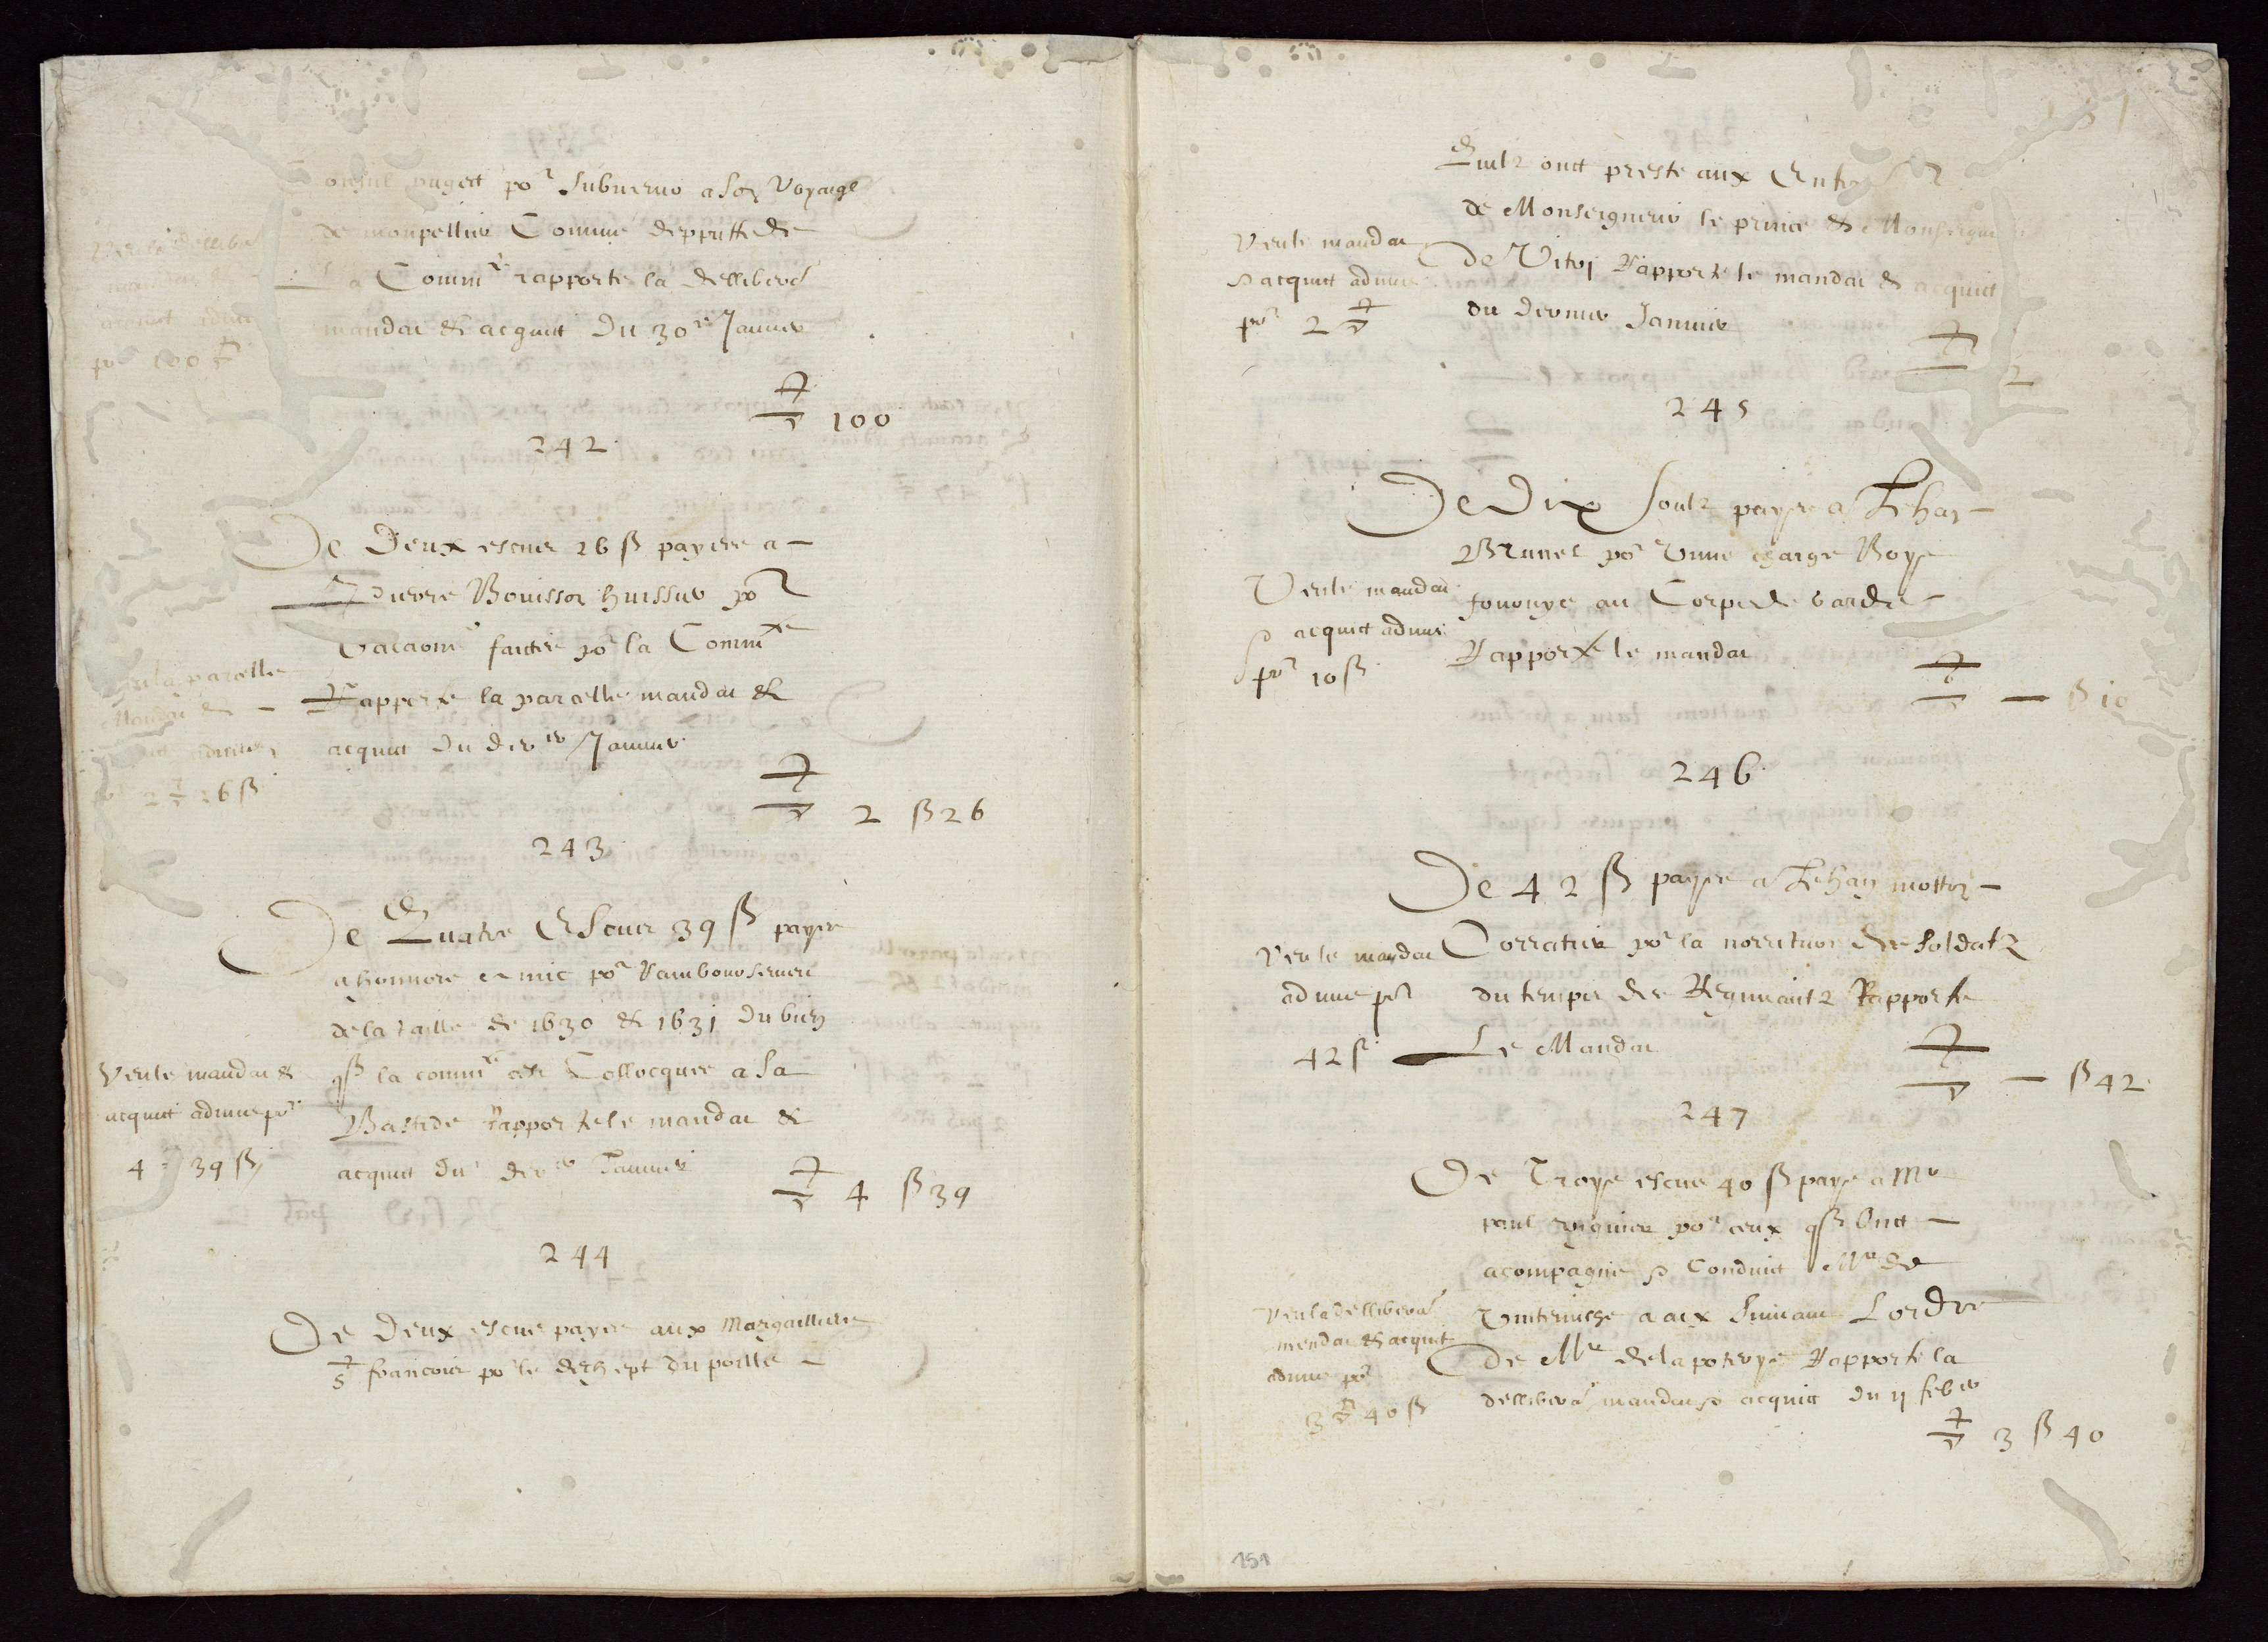 pugett po^r Subvenir a Son Voyaige
de monpellier Comme depputté de
la Comm^te rapporte la delliberaõ
mandat & acquit du 30^e Janvier
Veu la delliberaõ
mandat &
acquit admis
po^r 100
100
242
De Deux escus 26 ß payées a
Pierre Bouisson huissier po^r
Vacaõns faittes po^r la Comm^te
Rapporte la parcelle mandat &
acquit du der^er Janvier
la parcelle
Mandat &
admis
2 26 ß
2 ß 26
243
De Quatre Escus 39 ß payés
a honnoré emic po^r
de la taille de 1630 & 1631 du bien
q^s la comm^te est Collocquée a la
Bastide Rapporte le mandat &
acquit du der^er Janvier
Veu le mandat &
acquit admis po^r
4 39 ß
4 ß 39
244
De Deux escus payés aux Margailliers
S^t francois po^r le du poille
Quilz ont presté aux
de Monseigneur le prince & Monseigneur
de Vitri Rapporte le mandat & acquit
du dernier Janvier
Veu le mandat
& acquit admis
po^r 2
2
245
De Dix Soulz payés a Jehan
Brunet po^r Une charge Boys
fournye au Corps de garde
Rapporte le mandat
Veu le mandat
& acquit admis
po^r 10 ß
ß 10
246
De 42 ß payés a Jehan motton
Corratier po^r la norriture des Soldatz
du temps des Regimantz Rapporte
Le Mandat
Veu le mandat
admis po^r
42 ß
ß 42
247
De Troys escus 40 ß payés a M^e
paul viguier po^r ceux q^s Ont
acompagné & Conduit M^r de
a aix Suivant Lordre
de M^r de la poterye Rapporte la
delliberaõ mandat & acquit du 11 feb^er
Veu la delliberaõ
mandat & acquit
admis po^r
3 40 ß
3 ß 40
151